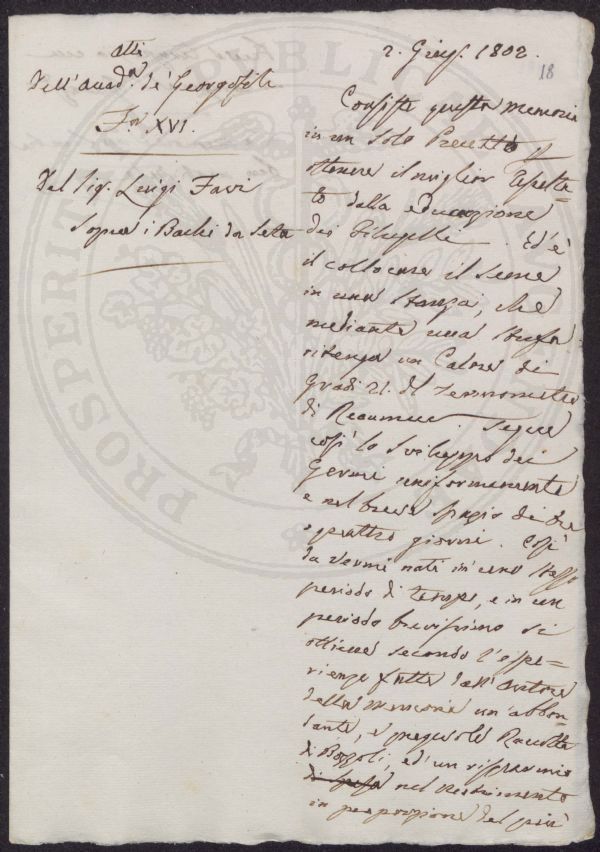 atti
Dell'Accad.a de' Georgofili
T.o XVI.
Del Sig. Luigi Favi
Sopra i Bachi da Seta
2. Giug. 1802.
18
Consiste questa memoria
in un solo Precetto p
ottenere il miglior rispetta=
to dalla educazione
dei Filugelli. Ed'è
il collocare il Seme
in una stanza, che
mediante una stufa
ritenga un Calore di
gradi 21. del Termometro
di Reaumur. Segue
così lo sviluppo dei
Germi uniformemente
e nel breve spazio di tre
o quattro giorni. Così
da vermi nati in uno stesso
periodo di tempo, e in un
periodo brevissimo si
ottiene secondo l'espe=
rienze fatte dall'Autore
della memoria un'abbon=
dante, e pregevole Raccolta
di Bozzoli, ed'un risparmio
di spesa nel Nutrimento
in proporzione del più
PROSPERITÀ PUBLICA